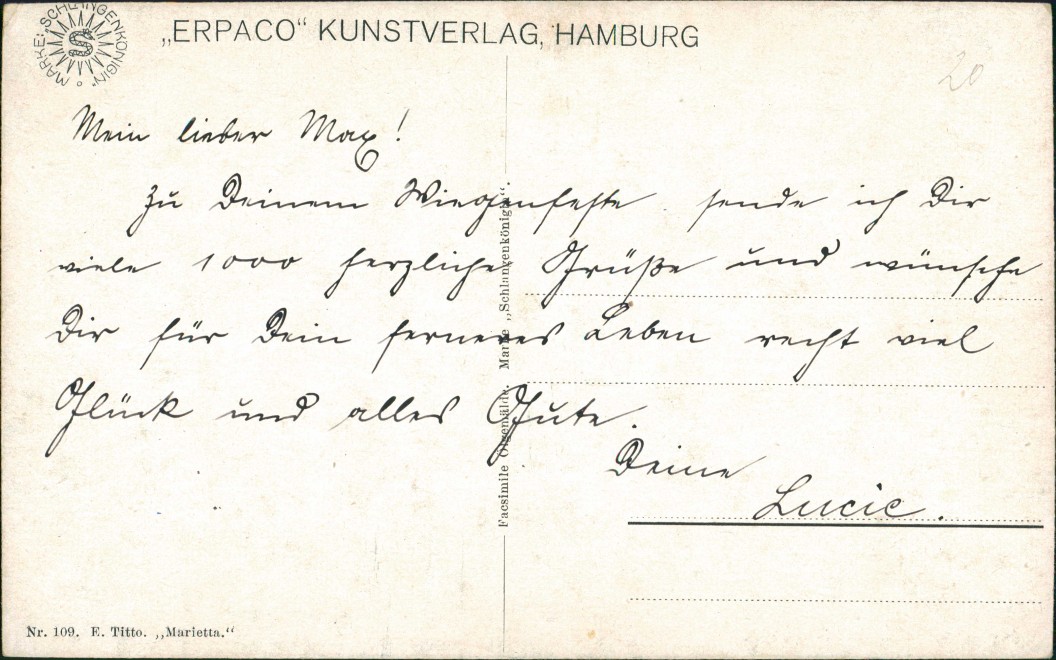 MARKE: „SCHLANGENKÖNIGIN“
S
„ERPACO“ KUNSTVERLAG, HAMBURG
20
Mein lieber Max!
Zu Deinem Wiegenfeste sende ich Dir
viele 1000 herzliche Grüße und wünsche
Dir für Dein ferneres Leben recht viel
Glück und alles Gute.
Deine
Lucie.
Facsimile Ölgemälde. Marke „Schlangenkönigin“.
Nr. 109. E. Titto. „Marietta.“